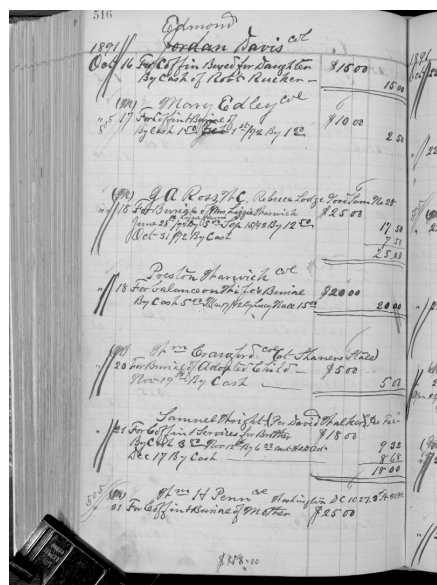 516
Edmond
Jordan Davis col
1891
Oct 16 For Coffin Boxed for Daughter $15.00
By Cash of Robt Rucker — 15 00
Mary Edley col
17 For Coffin & Burial of $10 00
By Cash 1 50 1st/92 By 1 00 2 50
G A Ross W C, Rebecca Lodge No 28
18 For Burial of Mrs Lizzie Warwick $25 00
June 28 By 5 00 Sep 15/92 By 12 50 17 50
Oct 31/92 By Cash 7 50
25 00
Preston Warwick col
18 For balance on Wife's Burial $20 00
By Cash 5 00 Lucy Nace 15 00 20 00
Wm Crawford col (at Shaners Place)
20 For Burial of Adopted Child — $5 00
Nov 19th By Cash — 5 00
Samuel Wright (Per David Walker)
21 For Coffin & Services for Brother $18 00
By Cash 3 00 Nov 12th By 6 32 9 32
Dec 17 By Cash — 8 68
18 00
505
Wm H Penn col Washington DC 1027, 3rd St
21 For Coffin & Burial of Mother $25 00
$118.00